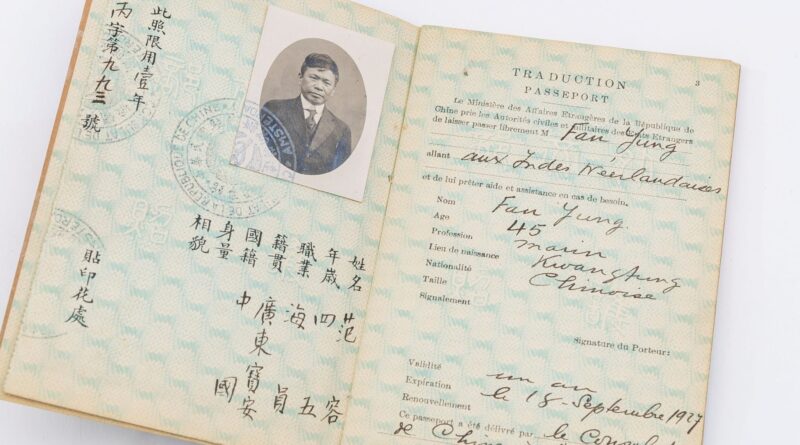 此照限用壹年
丙字第九九三號
姓名 范容
年歲 四五
職業 海員
籍貫 廣東寶安
國籍 中國
身量
相貌
貼印花處
LAT DE LA REPUBLIQUE DE CHINE
AMSTER
3
TRADUCTION
PASSEPORT
Le Ministère des Affaires Etrangères de la République de
Chine prie les Autorités civiles et militaires des Etats Etrangers
de laisser passer librement M Fan Yung
allant aux Indes Néerlandaises
et de lui prêter aide et assistance en cas de besoin.
Nom Fan Yung.
Age 45
Profession marin
Lieu de naissance Kwangtung
Nationalité Chinoise
Taille
Signalement
Signature du Porteur:
Validité un an
Expiration le 18 Septembre 1927
Renouvellement
Ce passeport a été délivré par le Consulat
de Chine